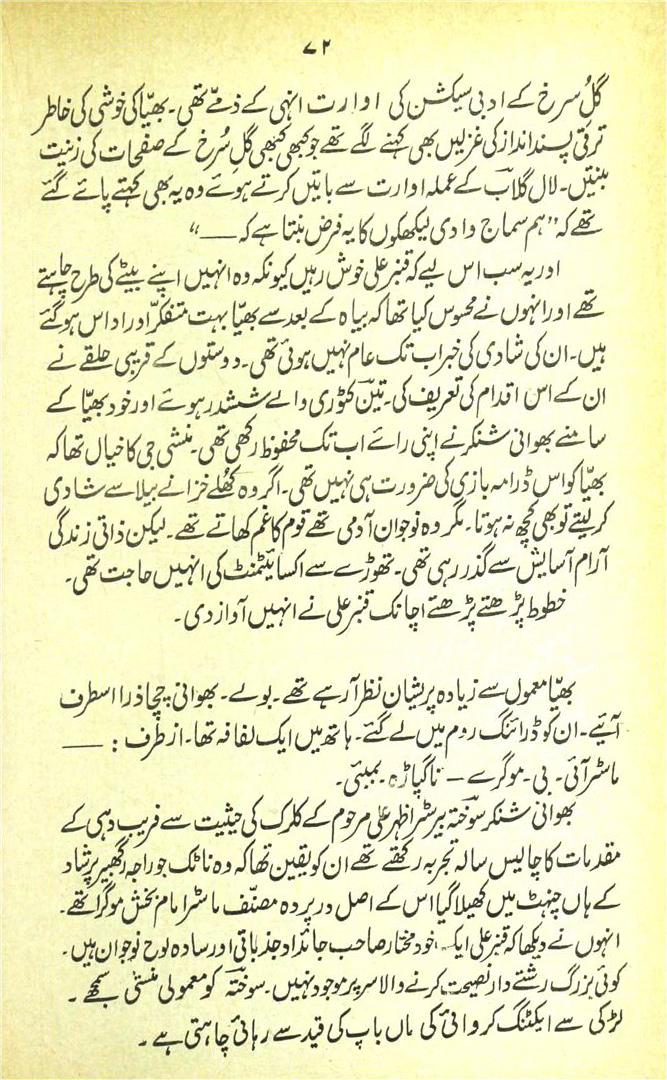 ۷۲
گلُ سرخ کے ادبی سیکشن کی اوارت انہی کے ذمے تھی۔ بھیّا کی خوشی کی خاطر
ترقی پسند انداز کی غزلیں بھی کہنے لگے تھے جو کبھی کبھی گلِ سُرخ کے صفحات کی زینت
بنتیں۔ لال گلاب کے عملہ اوارت سے باتیں کرتے ہوئے وہ یہ بھی کہتے پائے گئے
تھے کہ ”ہم سماج وادی لیکھکوں کا یہ فرض بنتا ہے کہ ——“
اور یہ سب اس لیے کہ قنبر علی خوش رہیں کیونکہ وہ انہیں اپنے بیٹے کی طرح چاہتے
تھے اور انہوں نے محسوس کیا تھا کہ بیاہ کے بعد سے بھیّا بہت متفکّر اور اداس ہو گئے
ہیں۔ ان کی شادی کی خبر اب تک عام نہیں ہوئی تھی۔ دوستوں کے قریبی حلقے نے
ان کے اس اقدام کی تعریف کی۔ تین کٹوری والے ششدر ہوئے اور خود بھیّا کے
سامنے بھوانی شنکر نے اپنی رائے اب تک محفوظ رکھی تھی۔ منشی جی کا خیال تھا کہ
بھیّا کو اس ڈرامہ بازی کی ضرورت ہی نہیں تھی۔ اگر وہ کھُلے خزانے بیلا سے شادی
کر لیتے تو بھی کچھ نہ ہوتا۔ مگر وہ نوجوان آدمی تھے قوم کا غم کھاتے تھے۔ لیکن ذاتی زندگی
آرام آسایش سے گذر رہی تھی۔ تھوڑے سے اکسائیٹمنٹ کی انہیں حاجت تھی۔
خطوط پڑھتے پڑھتے اچانک قنبر علی نے انہیں آواز دی۔
بھیّا معمول سے زیادہ پریشان نظر آ رہے تھے۔ بولے۔ بھوانی چچا ذرا اسطرف
آئیے۔ ان کو ڈرائنگ روم میں لے گئے۔ ہاتھ میں ایک لفافہ تھا۔ از طرف : ——
ماسٹر آئی۔ بی۔ موگرے — ناگپاڑہ۔ بمبئی۔
بھوانی شنکر سوختہ بیرسٹر اظہر علی مرحوم کے کلرک کی حیثیت سے فریب دہی کے
مقدمات کا چالیس سالہ تجربہ رکھتے تھے ان کو یقین تھا کہ وہ ناٹک جو راجہ رگھبیر پرشاد
کے ہاں چنہٹ میں کھیلا گیا اس کے اصل در پردہ مصنّف ماسٹر امام بخش موگرا تھے۔
انہوں نے دیکھا کہ قنبر علی ایک خود مختار صاحب جائداد جذباتی اور سادہ لوح نوجوان ہیں۔
کوئی بزرگ رشتے دار نصیحت کرنے والا سر پر موجود نہیں۔ سوختہ کو معمولی منشی سمجھے۔
لڑکی سے ایکٹنگ کروائی کی ماں باپ کی قید سے رہائی چاہتی ہے۔